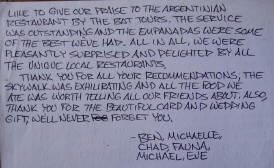 LIKE TO GIVE OUR PRAISE TO THE ARGENTINIAN
RESTAURANT BY THE BAT TOURS. THE SERVICE
WAS OUTSTANDING AND THE EMPANADAS WERE SOME
OF THE BEST WE'VE HAD. ALL IN ALL, WE WERE
PLEASANTLY SURPRISED AND DELIGHTED BY ALL
THE UNIQUE LOCAL RESTAURANTS.
THANK YOU FOR ALL YOUR RECOMMENDATIONS, THE
SKYWALK WAS EXHILIRATING AND ALL THE FOOD WE
ATE WAS WORTH TELLING ALL OUR FRIENDS ABOUT. ALSO,
THANK YOU FOR THE BEAUTIFUL CARD AND WEDDING
GIFT, WE'LL NEVER FORGET YOU.
- BEN, MICHAELLE,
CHAD, FAUNA,
MICHAEL, EVIE